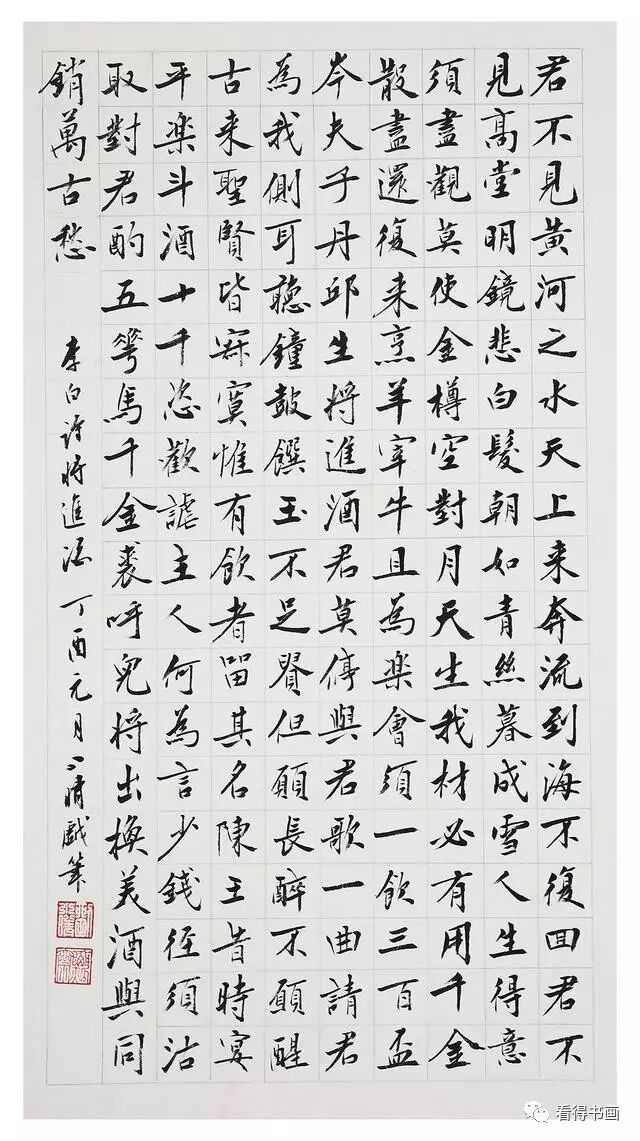 君不見黃河之水天上来奔流到海不復囬君不
見高堂明鏡悲白髮朝如青絲暮成雪人生得意
須盡觀莫使金樽空對月天生我材必有用千金
散盡還復来烹羊宰牛且為楽會須一飲三百盃
岑夫子丹邱生將進酒君莫停與君歌一曲請君
為我側耳聽鐘鼓饌玉不足貴但願長醉不願醒
古来聖賢皆寂寞惟有飲者留其名陳王昔時宴
平楽斗酒十千恣歡謔主人何為言少錢徑須沽
取對君酌五花馬千金裘呼兒將出換美酒與同
銷萬古愁
李白詩將進酒丁酉元月晴戲筆
看得书画